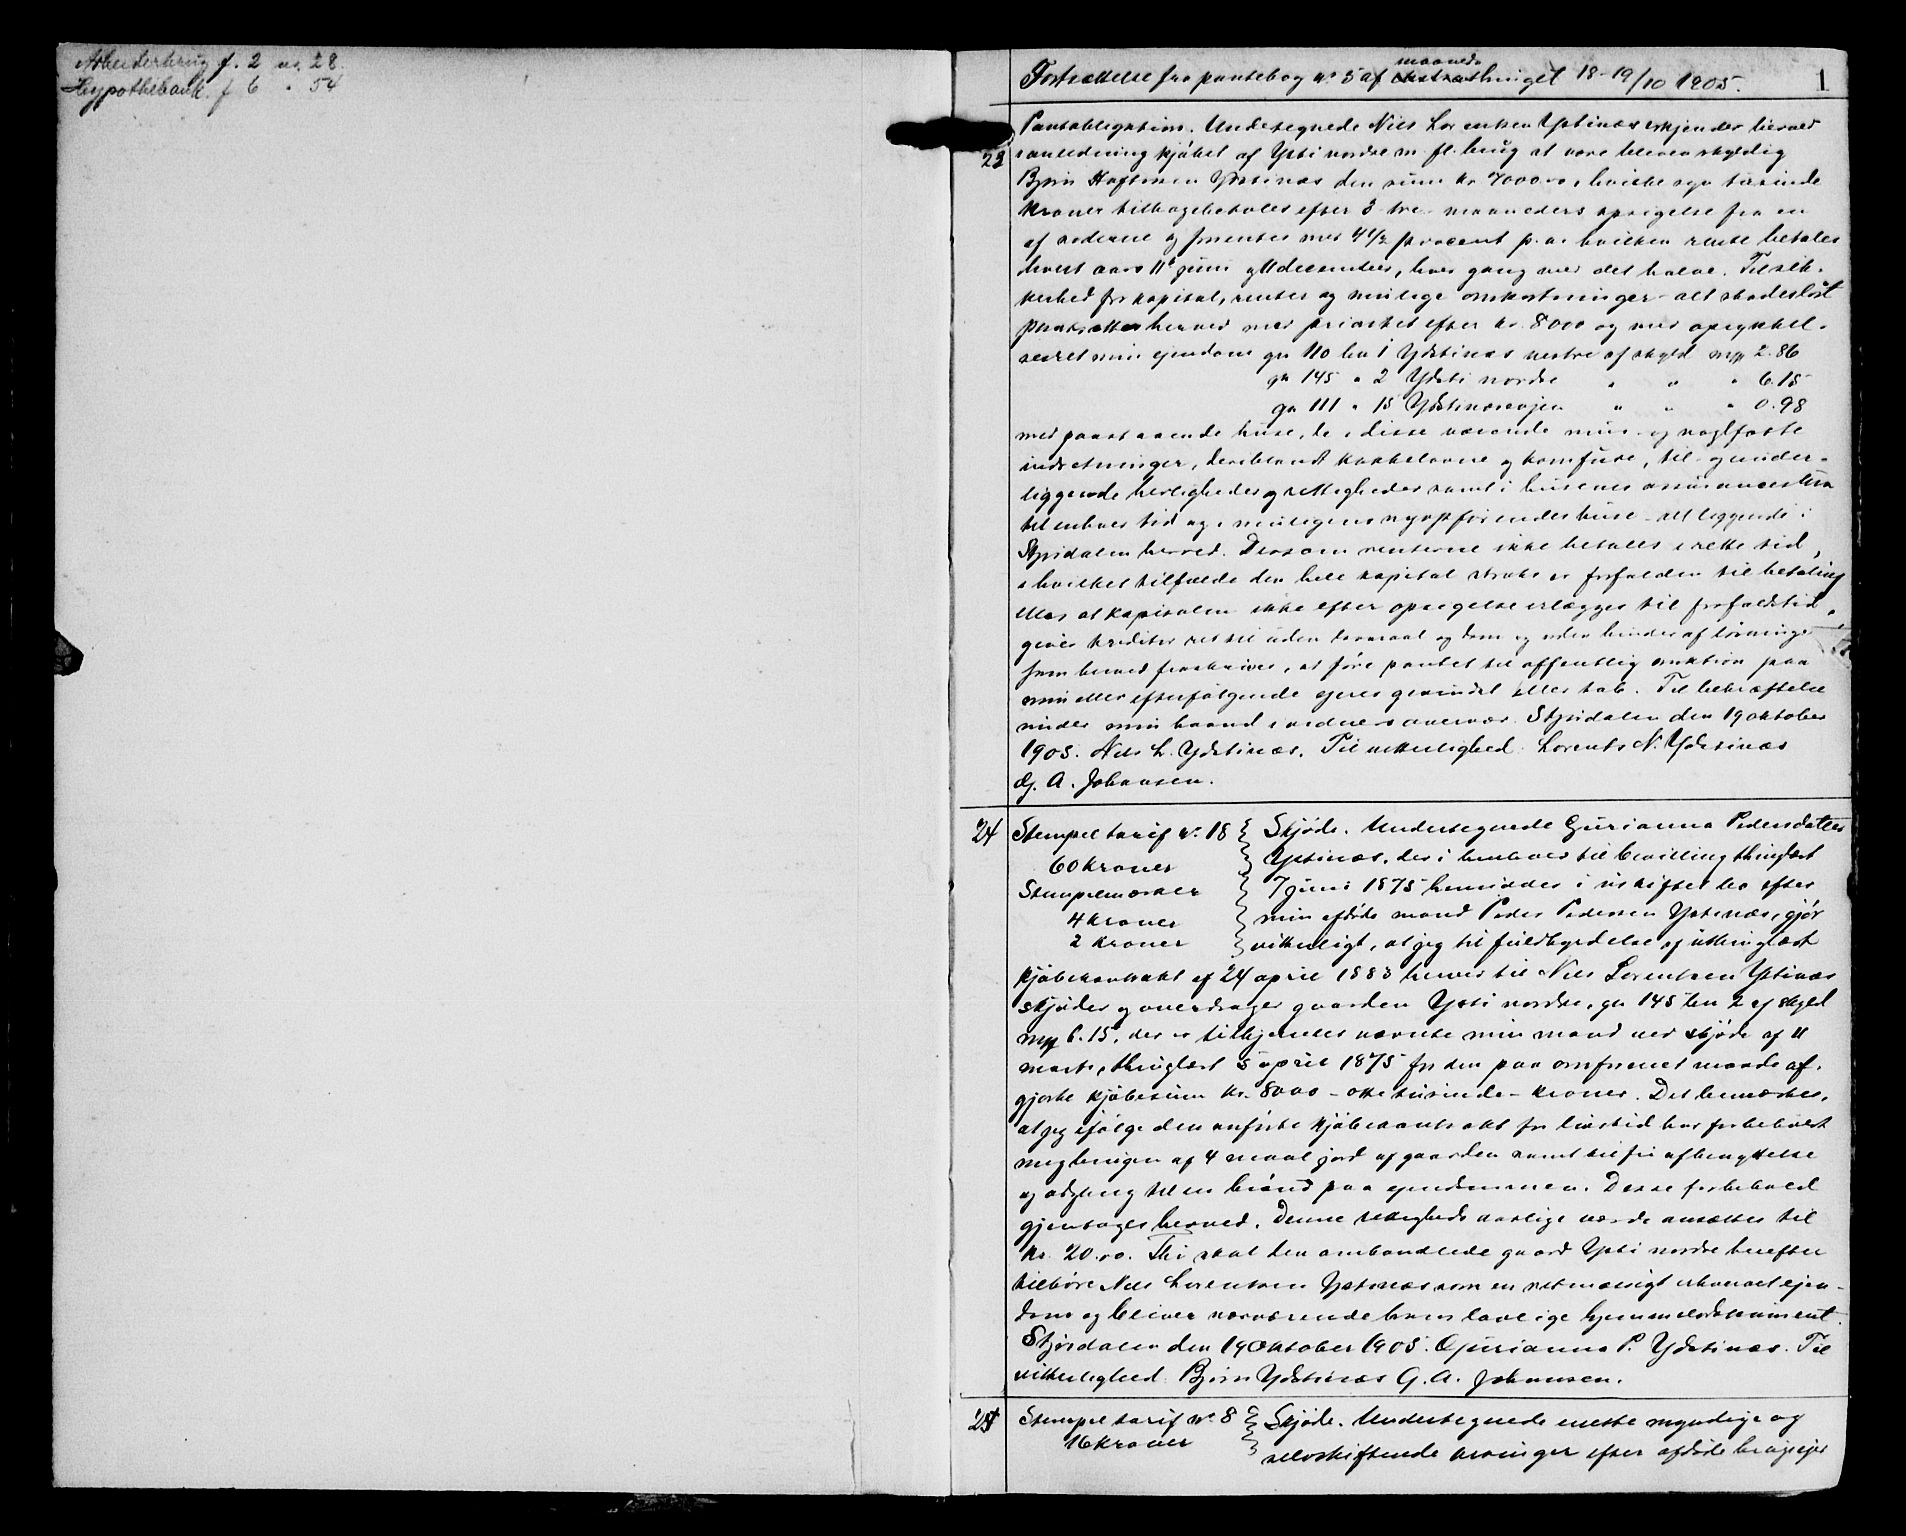 Arbeiderbrug f. 2 no. 28.
Hypothekbank. f 6 " 54
maaneds
Fortsættelse fra pantebog no 5 af extrathinget 18-19/10 1905.
1
Pantobligation. Undertegnede Nils Lorentsen Ystinæs erkjender herved
23
i anledning kjøbet af Ysti nordre m. fl. brug at være bleven skyldig
Bjørn Ystinæs den sum kr 7000.00, hvilke syv tusinde
kroner tilbagebetales efter 3 tre maaneders opsigelse fra en
af siderne og forrentes med 4 1/2 procent p. a. hvilken rente betales
hvert aars 11 juni og 11 december, hver gang med det halve. Til sik-
kerhed for kapital, renter og mulige omkostninger - alt skadesløst
pantsættes herved med prioritet efter kr. 8000 og med oprykkel-
sesret min eiendom gn 110 bn 1 Ydstinæs vestre af skyld mk 2.86
gn 145 " 2 Ydsti nordre " " " 6.15
gn 111 " 15 " " " 0.98
med paastaaende huse, de i disse værende mur- og naglfaste
indretninger, deriblandt kakkelovne og komfure, til- og under-
liggende herligheder og rettigheder samt i husenes assurancesum
til enhver tid og i muligens nyopførendes huse - alt liggende i
Stjørdalen herred. Dersom renterne ikke betales i rette tid,
i hvilket tilfælde den hele kapital straks er forfalden til betaling
eller at kapitalen ikke efter opsigelse erlægges til forfaldstid,
gives kreditor ret til uden lovmaal og dom og uden hinder af løsninger
som herved fraskrives, at føre pantet til offentlig auktion paa
min eller efterfølgende eieres gevindst eller tab. Til bekræftelse
under min haand i vidners overvær. Stjørdalen den 19 oktober
1905. Nils L. Ydstinæs. Til vitterlighed: Lorents N. Ydstinæs
G. A. Johansen.
24
Stempeltarif no 18 Skjøde. Undertegnede Gurianna Pedersdatter
60 kroner Ystinæs, der i henhold til bevilling thinglæst
Stempelmærker 7 juni 1875 hensidder i uskiftet bo efter
4 kroner min afdøde mand Peder Pedersen Ystinæs, gjør
2 kroner vitterligt, at jeg til fuldbyrdelse af utinglæst
kjøbekontrakt af 24 april 1883 herved til Nils Lorentsen Ystinæs
skjøder og overdrager gaarden Ysti nordre, gn 145 bn 2 af skyld
mk 6.15, der er tilhjemlet nævnte min mand ved skjøde af 11
marts, thinglæst 5 april 1875 for den paa omforenet maade af-
gjorte kjøbesum kr. 8000 - otte tusinde - kroner. Det bemærkes,
at jeg ifølge den anførte kjøbekontrakt for livstid har forbeholdt
mig brugen af 4 maal jord af gaarden samt til fri afbenyttelse
og adgang til en brønd paa eiendommen. Disse forbehold
gjentages herved. Denne rettigheds aarlige værdi ansættes til
kr. 20.00. Thi skal den ombandlede gaard Ysti nordre herefter
tilhøre Nils Lorentsen Ystinæs som en retmæssigt erhvervet eien-
dom og bliver nærværende hans lovlige hjemmelsdokument.
Stjørdalen den 19 oktober 1905. Gurianna P. Ydstinæs. Til
vitterlighed: Bjørn Ydstinæs G. A. Johansen.
25
Stempeltarif no 8 Skjøde. Undertegnede eneste myndige og
16 kroner selvskiftende arvinger efter afdøde brugseier